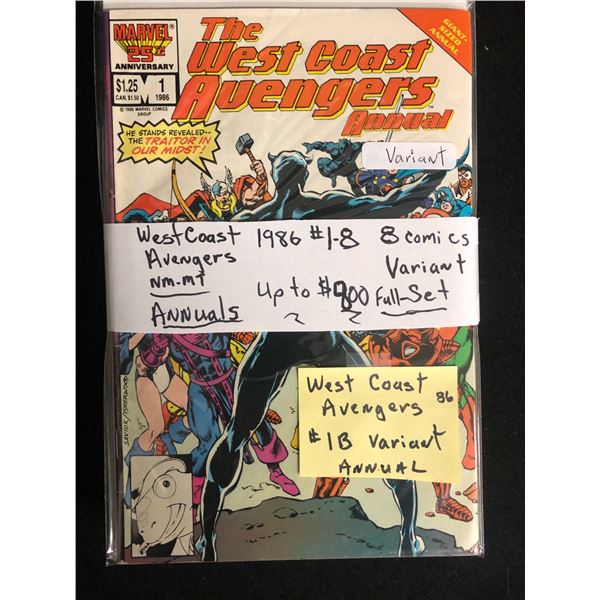 MARVEL
25TH
ANNIVERSARY
$1.25
CAN. $1.50
1
1986
© 1986 MARVEL COMICS
GROUP
The
West Coast
Avengers™
Annual
GIANT-
SIZED
ANNUAL
HE STANDS REVEALED--
THE TRAITOR IN
OUR MIDST!
Variant
West Coast 1986 #1-8 8 comics
Avengers Variant
NM-MT Up to $900 Full-Set
ANNUALS
West Coast 86
Avengers
#1B Variant
ANNUAL
SAVIUK/ISHERWOOD